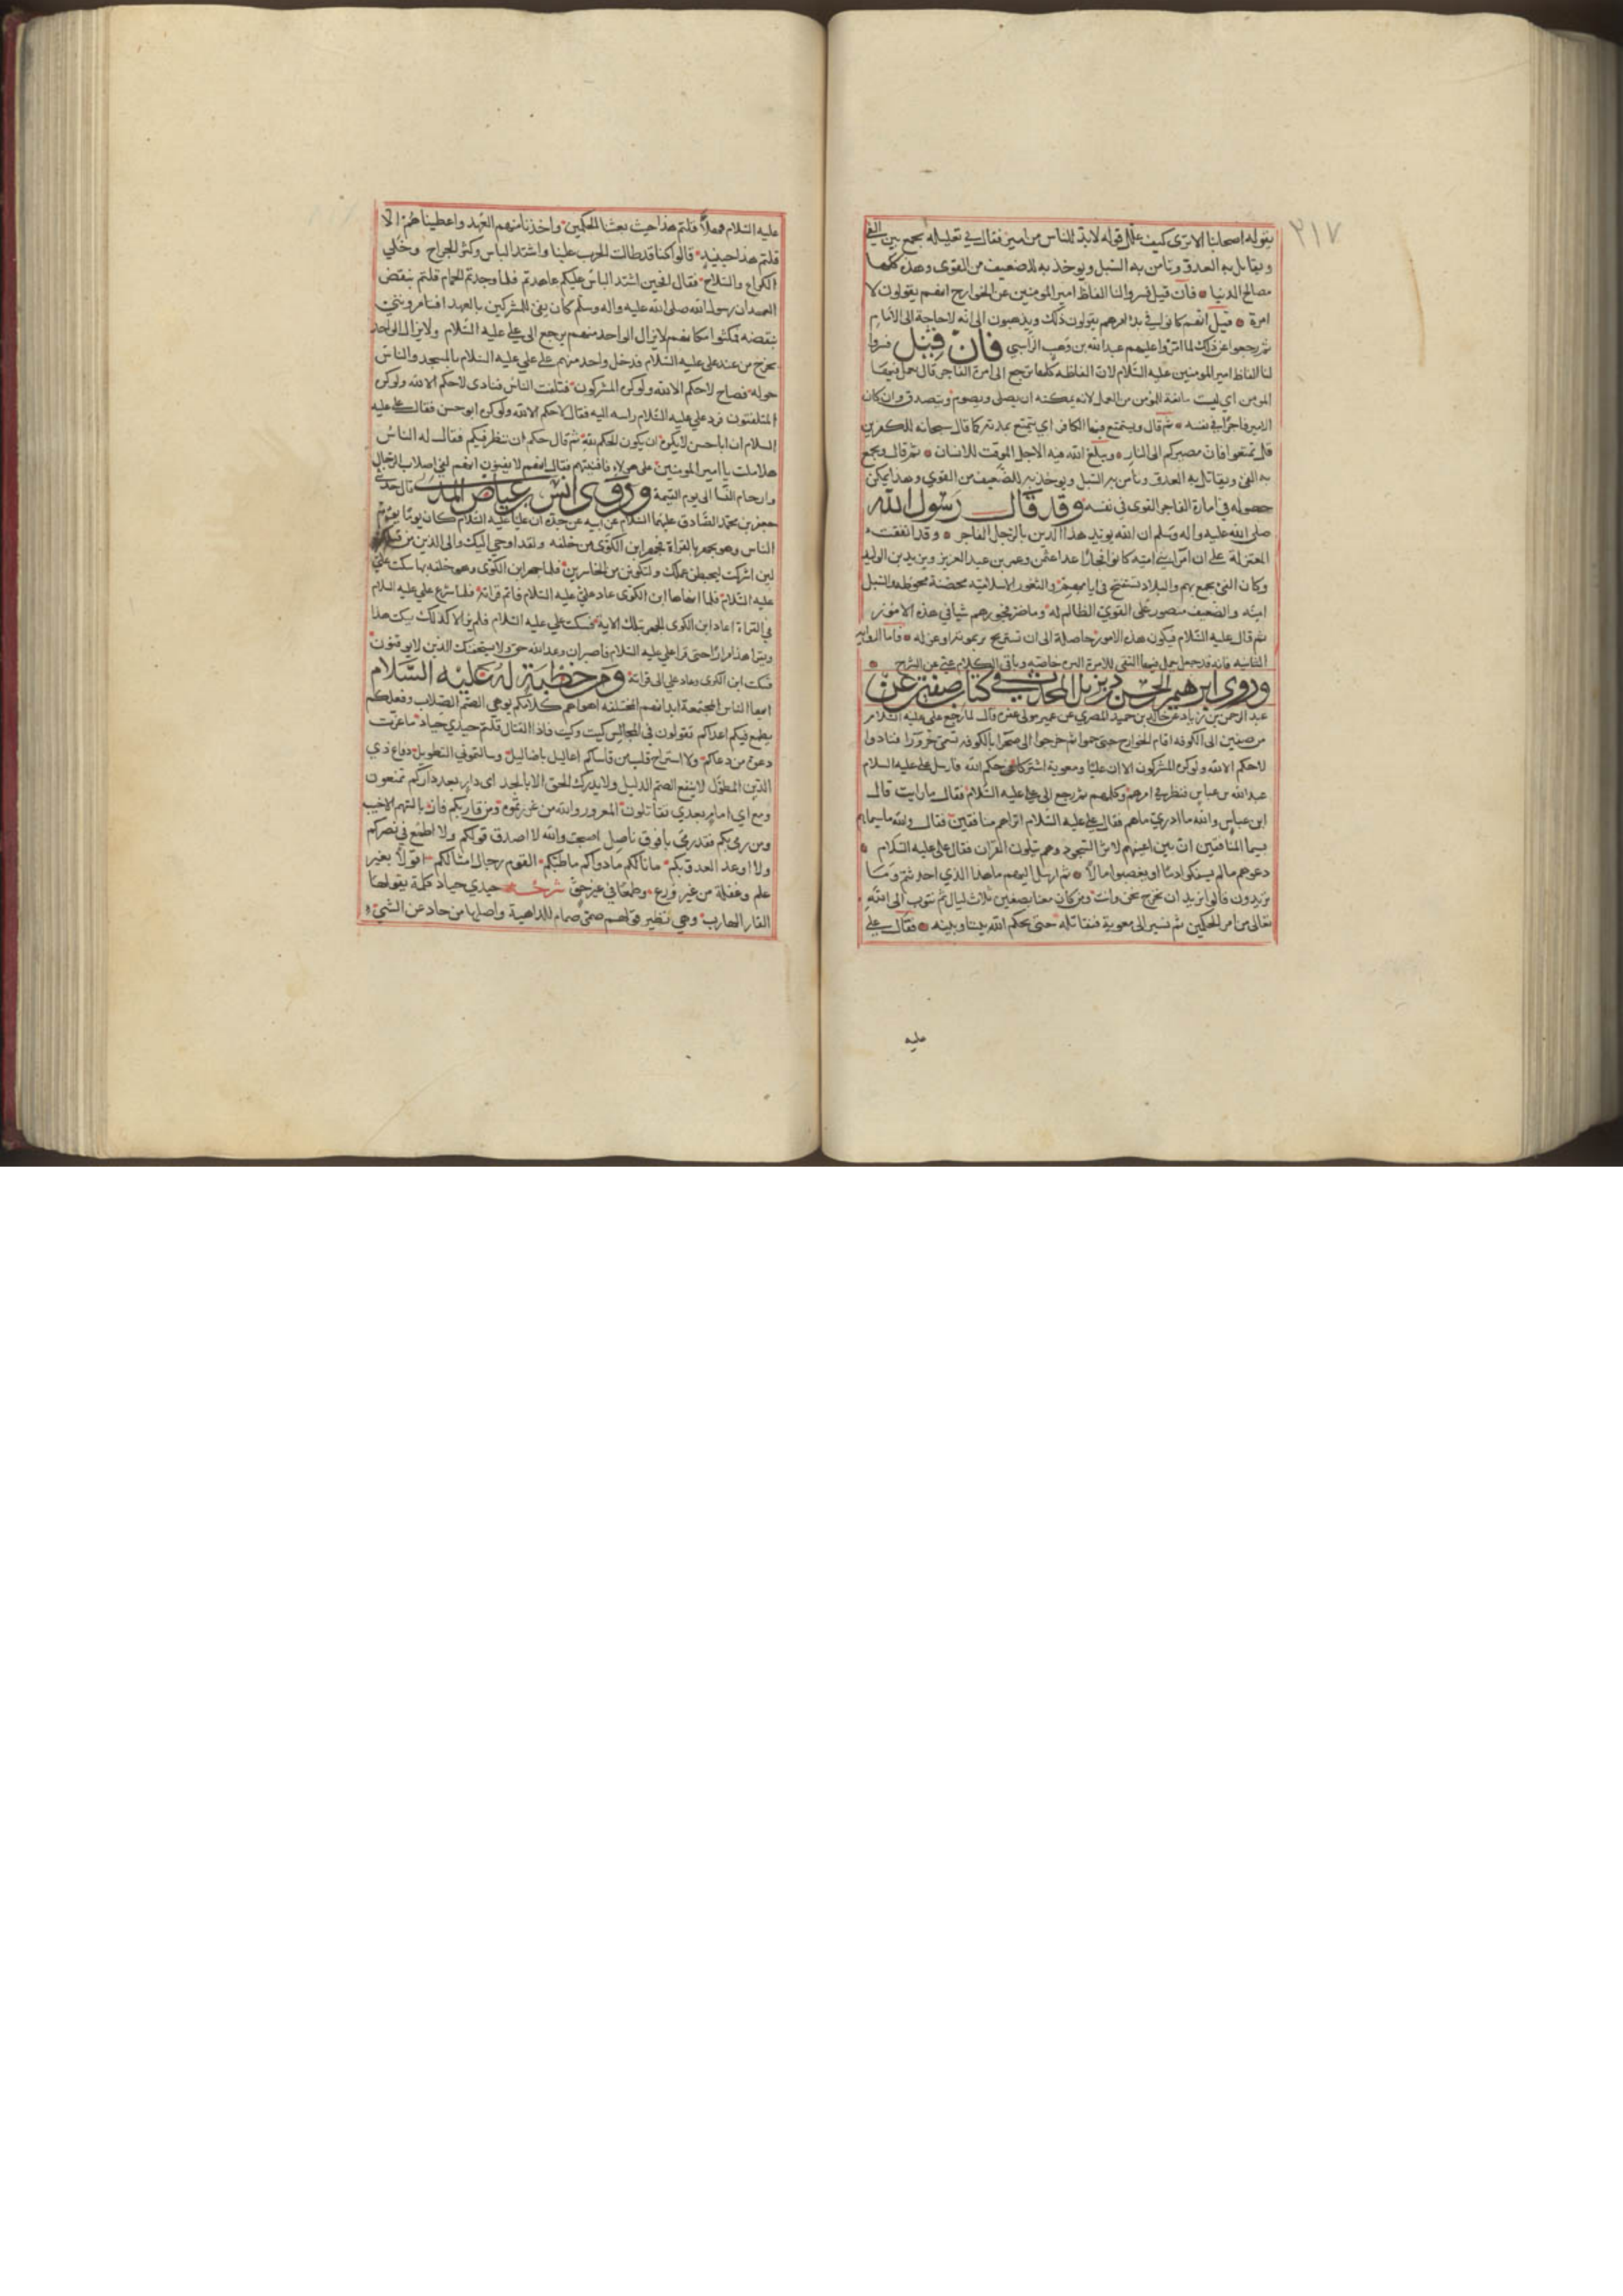 ٣١٧
بقوله اصحابنا الا ترى كيف علل قوله لا بد للناس من امير فقال في تعليله يجمع به الفئ
ويقاتل به العدو وتامن به السبل ويوخذ به للضعيف من القوى وهذه كلها
مصالح الدنيا فان قيل فسروا لنا الفاظ امير المومنين عن الخوارج انهم يقولون لا
امرة قيل انهم كانوا في بدء امرهم يقولون ذلك ويذهبون الى انه لا حاجة الى الامام
ثم رجعوا عن ذلك لما امروا عليهم عبد الله بن وهب الراسبي فان قيل فسروا
لنا الفاظ امير المومنين عليه السلام لان الفاظه كلها ترجع الى امرة الفاجر قال يعمل فيها
المومن اي ليست مانعة للمومن من العمل لانه يمكنه ان يصلى ويصوم ويتصدق وان كان
الامير فاجرا في نفسه ثم قال ويستمتع فيها الكافر اي يتمتع بمدته كما قال سبحانه للكفرين
قل تمتعوا فان مصيركم الى النار ويبلغ الله فيه الاجل الموقت للانسان ثم قال ويجمع
به الفئ ويقاتل به العدو وتامن به السبل ويوخذ به للضعيف من القوي وهذا يمكن
حصوله في امارة الفاجر القوى في نفسه وقد قال رسول الله
صلى الله عليه واله وسلم ان الله يويد هذا الدين بالرجل الفاجر وقد اتفقت
المعتزلة على ان امرا بني اميه كانوا فجارا عدا عثمن وعمر بن عبد العزيز ويزيد بن الوليد
وكان الفئ يجمع بهم والبلاد تستفتح في ايامهم والثغور الاسلاميه محصنة محوطة والسبل
امنه والضعيف منصور على القوي الظالم له وما ضر فجورهم شيا في هذه الامور
ثم قال عليه السلام فيكون هذه الامور حاصلة الى ان تستريح بر بموته او عزله فاما الروايه
الثانيه فانه قد جعل يعمل فيها التقى للامرة البره خاصه وباقي الكلام غني عن الشرح
وروى ابرهيم الحسن ديزيل المحدث في كتاب صفين عن
عبد الرحمن بن زياد عن خالد بن حميد المصري عن عمر مولى غفره قال لما رجع علي عليه السلام
من صفين الى الكوفه اقام الخوارج حتى جموا ثم خرجوا الى صحرا بالكوفه تسمى حرورا فنادوا
لا حكم الا لله ولو كره المشركون الا ان عليا ومعوية اشتركا في حكم الله فارسل علي عليه السلام
عبد الله بن عباس فنظر في امرهم وكلمهم ثم رجع الى علي عليه السلام فقال ما رايت قال
ابن عباس والله ما ادري ما هم فقال علي عليه السلام اتراهم منافقين فقال والله ما سيماهم
بسيما المنافقين ان بين اعينهم لاثر السجود وهم يتلون القران فقال علي عليه السلام
دعوهم ما لم يسفكوا دما او يغصبوا مالا ثم ارسل اليهم ما هذا الذي احدثتم وما
تريدون قالوا نريد ان نخرج نحن وانت ومن كان معنا بصفين ثلاث ليال ثم نتوب الى الله
تعالى من امر الحكمين ثم نسير الى معوية فنقاتله حتى يحكم الله بيننا وبينه فقال علي
عليه
عليه السلام فهلا قلتم هذا حيث بعثنا الحكمين واخذنا منهم العهد واعطيناهم الا
قلتم هذا حينيذ قالوا كنا قد طالت الحرب علينا واشتد الباس وكثر الجراح وخلي
الكراع والسلاح فقال افحين اشتد الباس عليكم عاهدتم فلما وجدتم الجمام قلتم ننقض
العهد ان رسول الله صلى الله عليه واله وسلم كان يفي للمشركين بالعهد افتامرونني
بنقضه فمكثوا مكانهم لا يزال الواحد منهم يرجع الى علي عليه السلام ولا يزال الواحد
يخرج من عند علي عليه السلام فدخل واحد منهم على علي عليه السلام بالمسجد والناس
حوله فصاح لا حكم الا لله ولو كره المشركون فتلفت الناس فنادى لا حكم الا لله ولو كره
المتلفتون فرفع علي عليه السلام راسه اليه فقال لا حكم الا لله ولو كره ابو حسن فقال علي عليه
السلام ان ابا حسن لا يكره ان يكون الحكم لله ثم قال حكم الله انتظر فيكم فقال له الناس
هلا ملت يا امير المومنين على هولاء فافنيتهم فقال انهم لا يفنون انهم لفي اصلاب الرجال
وارحام النسا الى يوم القيمة وروى انس بن عياض المدني قال حدثني
جعفر بن محمد الصادق عليهما السلام عن ابيه عن جده ان عليا عليه السلام كان يوما يوم
الناس وهو يجهر بالقراة فجهر ابن الكوى من خلفه ولقد اوحي اليك والى الذين من قبلك
لين اشركت ليحبطن عملك ولتكونن من الخاسرين فلما جهر ابن الكوى وهو خلفه بها سكت علي
عليه السلام فلما انهاها ابن الكوى عاد علي عليه السلام فاتم قرائته فلما شرع علي عليه السلام
في القراة اعاد ابن الكوى الجهر بتلك الاية فسكت علي عليه السلام فلم يزالا كذلك يسكت هذا
ويقرا هذا مرارا حتى قرا علي عليه السلام فاصبر ان وعد الله حق ولا يستخفنك الذين لا يوقنون
فسكت ابن الكوى وعاد علي الى قرائته ومن خطبة له عليه السلام
ايها الناس المجتمعة ابدانهم المختلفه اهواهم كلامكم يوهي الصم الصلاب وفعلكم
يطمع فيكم اعداكم تقولون في المجالس كيت وكيت فاذا القتال قلتم حيدي حياد ما عزت
دعوة من دعاكم ولا استراح قلب من قاساكم اعاليل باضاليل وسالتموني التطويل دفاع ذي
الدين المطول لا يمنع الضيم الذليل ولا يدرك الحق الا بالجد اى دار بعد داركم تمنعون
ومع اي امام بعدي تقاتلون المغرور والله من غررتموه ومن فاز بكم فاز بالسهم الاخيب
ومن رمى بكم فقد رمى بافوق ناصل اصبحت والله لا اصدق قولكم ولا اطمع في نصركم
ولا اوعد العدو بكم ما بالكم ما دواكم ما طبكم القوم رجال امثالكم اقولا بغير
علم وغفلة من غير ورع وطمعا في غير حق شرح حيدي حياد كلمة يقولها
الفار الهارب وهي نظير قولهم صمي صمام للداهية واصلها من حاد عن الشئ